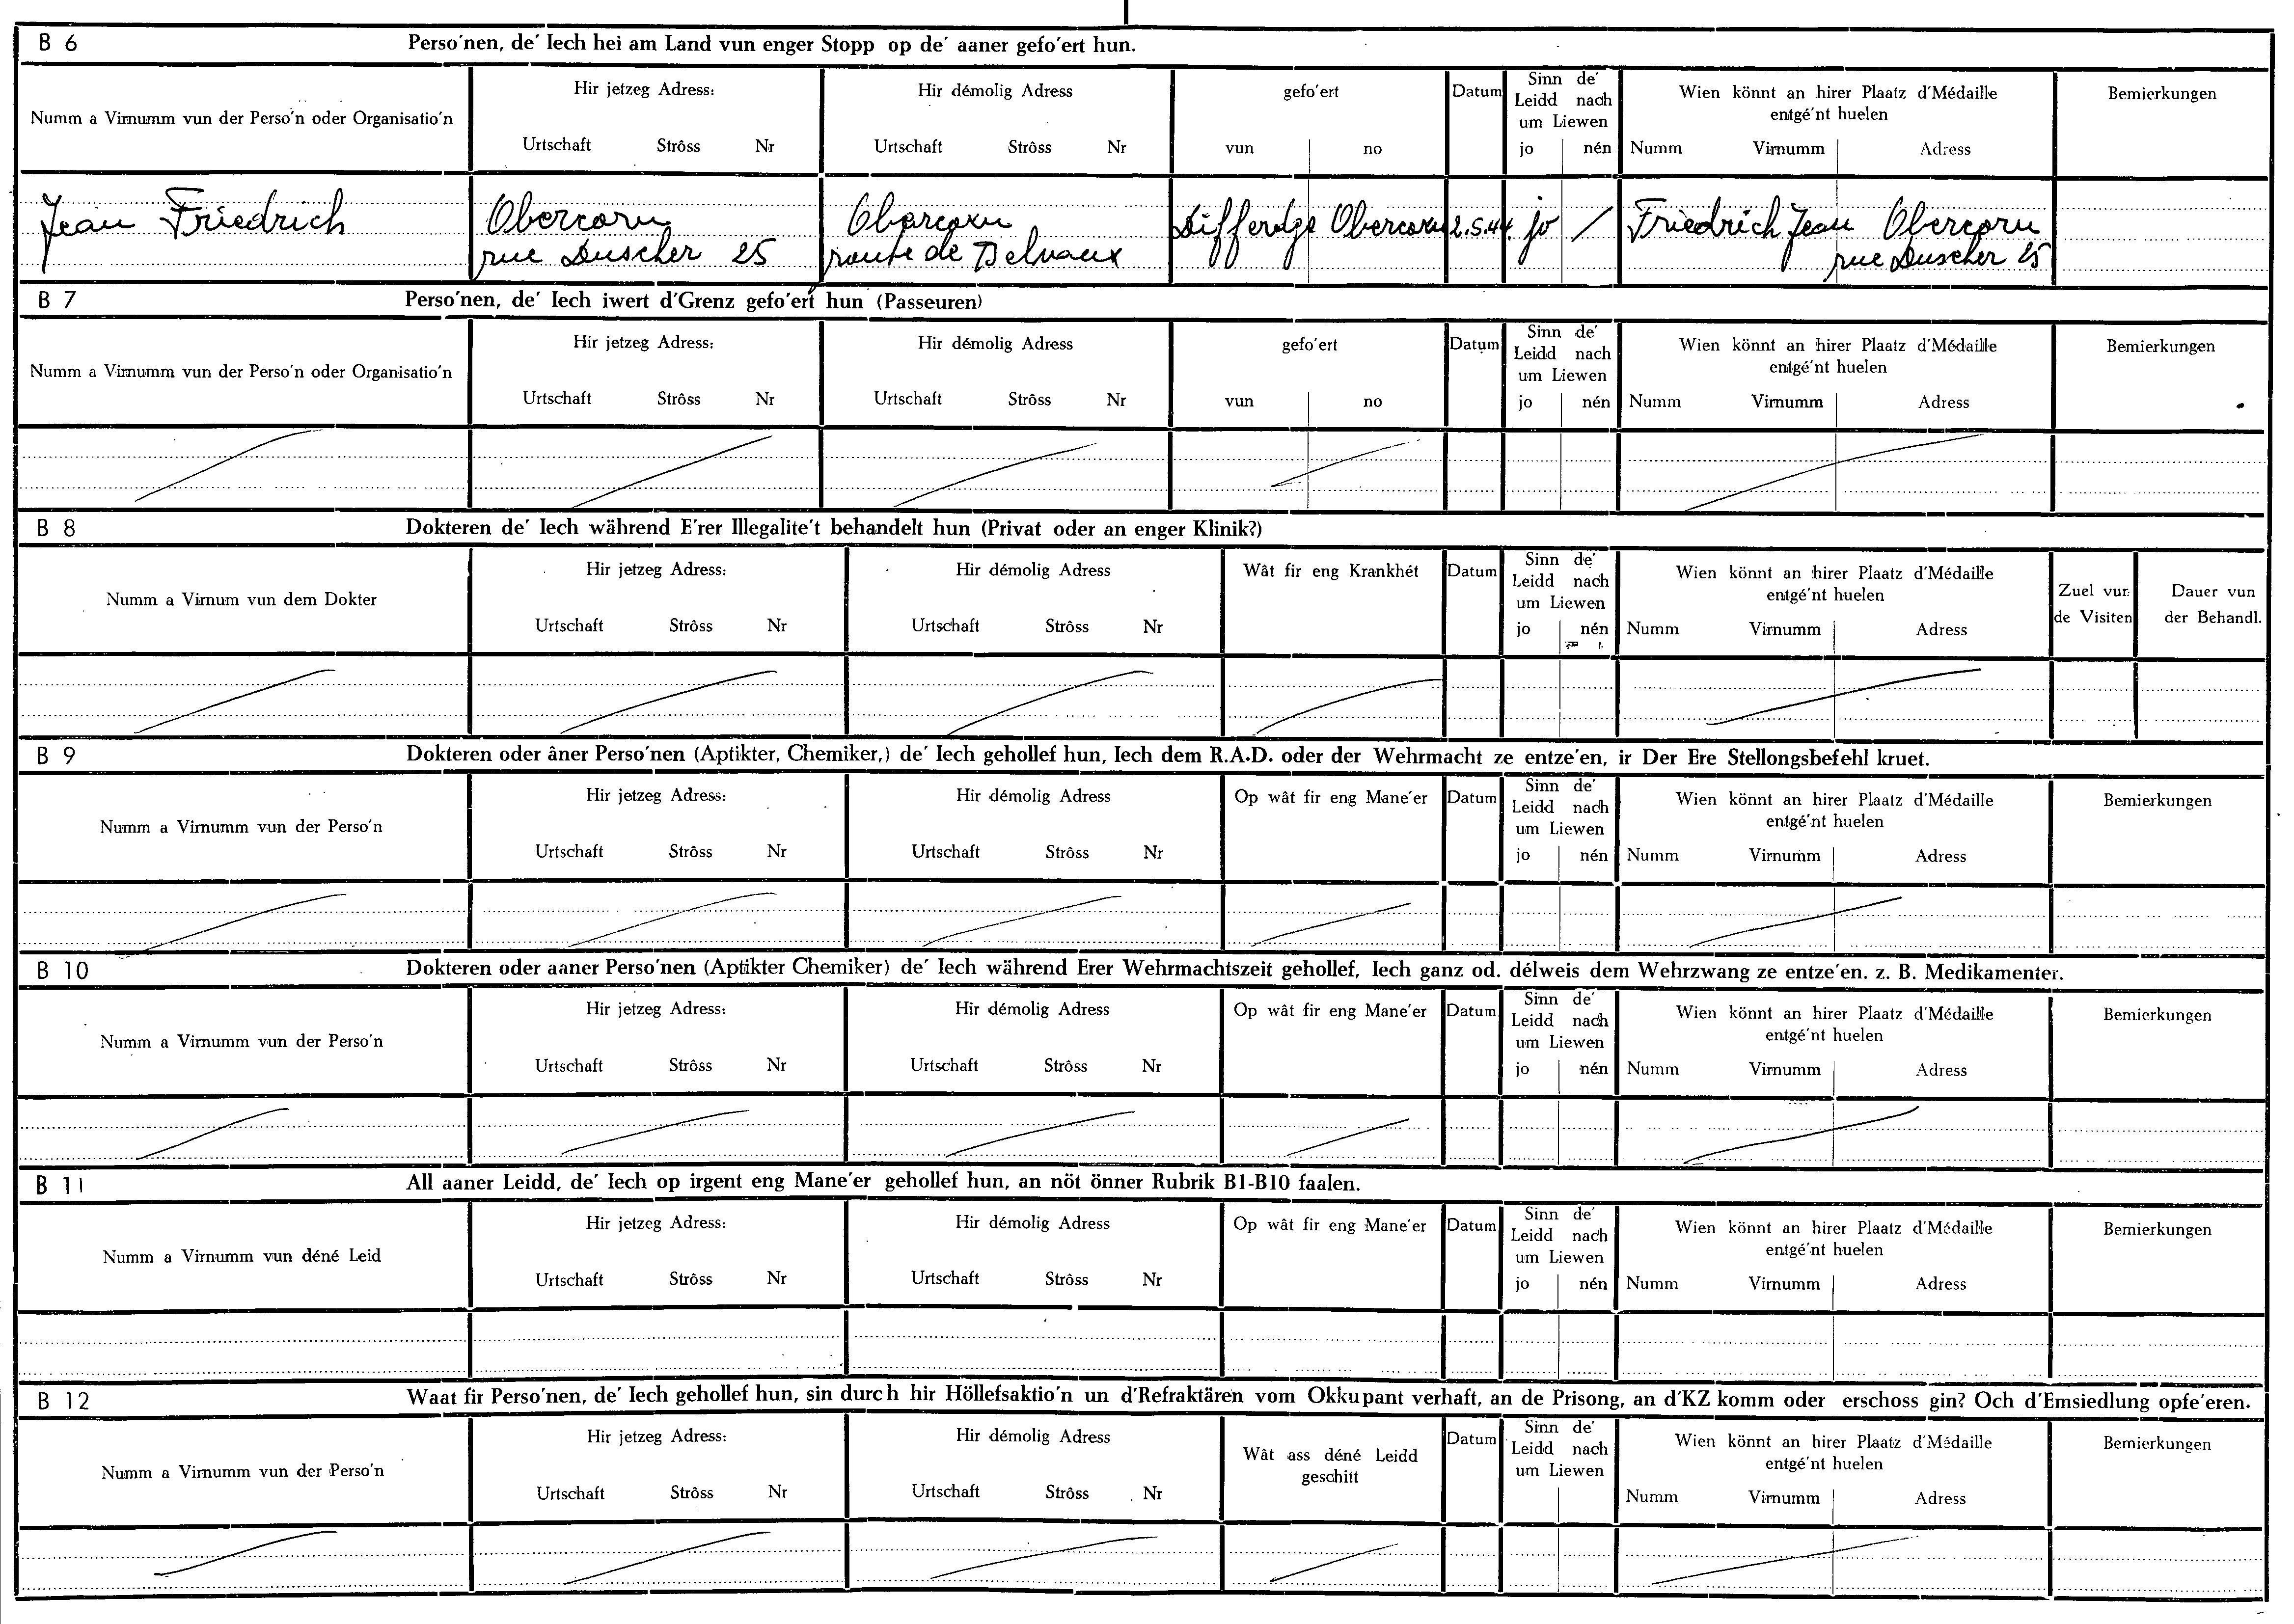 B 6 Perso'nen, de' Iech hei am Land vun enger Stopp op de' aaner gefo'ert hun.
Numm a Virnumm vun der Perso'n oder Organisatio'n
Hir jetzeg Adress:
Urtschaft Strôss Nr
Hir démolig Adress
Urtschaft Strôss Nr
gefo'ert
vun no
Datum
Sinn de'
Leidd nach
um Liewen
jo nén
Wien könnt an hirer Plaatz d'Médaille
entgé'nt huelen
Numm Virnumm Adress
Bemierkungen
Jean Friedrich
Obercorn
rue Duscher 25
Obercorn
route de Belvaux
Differdge Obercorn 2.5.44. jo /
Friedrich Jean Obercorn
rue Duscher 25
B 7 Perso'nen, de' Iech iwert d'Grenz gefo'ert hun (Passeuren)
Numm a Virnumm vun der Perso'n oder Organisatio'n
Hir jetzeg Adress:
Urtschaft Strôss Nr
Hir démolig Adress
Urtschaft Strôss Nr
gefo'ert
vun no
Datum
Sinn de'
Leidd nach
um Liewen
jo nén
Wien könnt an hirer Plaatz d'Médaille
entgé'nt huelen
Numm Virnumm Adress
Bemierkungen
B 8 Dokteren de' Iech während E'rer Illegalite't behandelt hun (Privat oder an enger Klinik?)
Numm a Virnum vun dem Dokter
Hir jetzeg Adress:
Urtschaft Strôss Nr
Hir démolig Adress
Urtschaft Strôss Nr
Wât fir eng Krankhét
Datum
Sinn de'
Leidd nach
um Liewen
jo nén
Wien könnt an hirer Plaatz d'Médaille
entgé'nt huelen
Numm Virnumm Adress
Zuel vun
de Visiten
Dauer vun
der Behandl.
B 9 Dokteren oder âner Perso'nen (Aptikter, Chemiker,) de' Iech gehollef hun, Iech dem R.A.D. oder der Wehrmacht ze entze'en, ir Der Ere Stellongsbefehl kruet.
Numm a Virnumm vun der Perso'n
Hir jetzeg Adress:
Urtschaft Strôss Nr
Hir démolig Adress
Urtschaft Strôss Nr
Op wât fir eng Mane'er
Datum
Sinn de'
Leidd nach
um Liewen
jo nén
Wien könnt an hirer Plaatz d'Médaille
entgé'nt huelen
Numm Virnumm Adress
Bemierkungen
B 10 Dokteren oder aaner Perso'nen (Aptikter Chemiker) de' Iech während Erer Wehrmachtszeit gehollef, Iech ganz od. délweis dem Wehrzwang ze entze'en. z. B. Medikamenter.
Numm a Virnumm vun der Perso'n
Hir jetzeg Adress:
Urtschaft Strôss Nr
Hir démolig Adress
Urtschaft Strôss Nr
Op wât fir eng Mane'er
Datum
Sinn de'
Leidd nach
um Liewen
jo nén
Wien könnt an hirer Plaatz d'Médaille
entgé'nt huelen
Numm Virnumm Adress
Bemierkungen
B 11 All aaner Leidd, de' Iech op irgent eng Mane'er gehollef hun, an nöt önner Rubrik B1-B10 faalen.
Numm a Virnumm vun déné Leid
Hir jetzeg Adress:
Urtschaft Strôss Nr
Hir démolig Adress
Urtschaft Strôss Nr
Op wât fir eng Mane'er
Datum
Sinn de'
Leidd nach
um Liewen
jo nén
Wien könnt an hirer Plaatz d'Médaille
entgé'nt huelen
Numm Virnumm Adress
Bemierkungen
B 12 Waat fir Perso'nen, de' Iech gehollef hun, sin durch hir Höllefsaktio'n un d'Refraktären vom Okkupant verhaft, an de Prisong, an d'KZ komm oder erschoss gin? Och d'Emsiedlung opfe'eren.
Numm a Virnumm vun der Perso'n
Hir jetzeg Adress:
Urtschaft Strôss Nr
Hir démolig Adress
Urtschaft Strôss Nr
Wât ass déné Leidd
geschitt
Datum
Sinn de'
Leidd nach
um Liewen
Wien könnt an hirer Plaatz d'Médaille
entgé'nt huelen
Numm Virnumm Adress
Bemierkungen